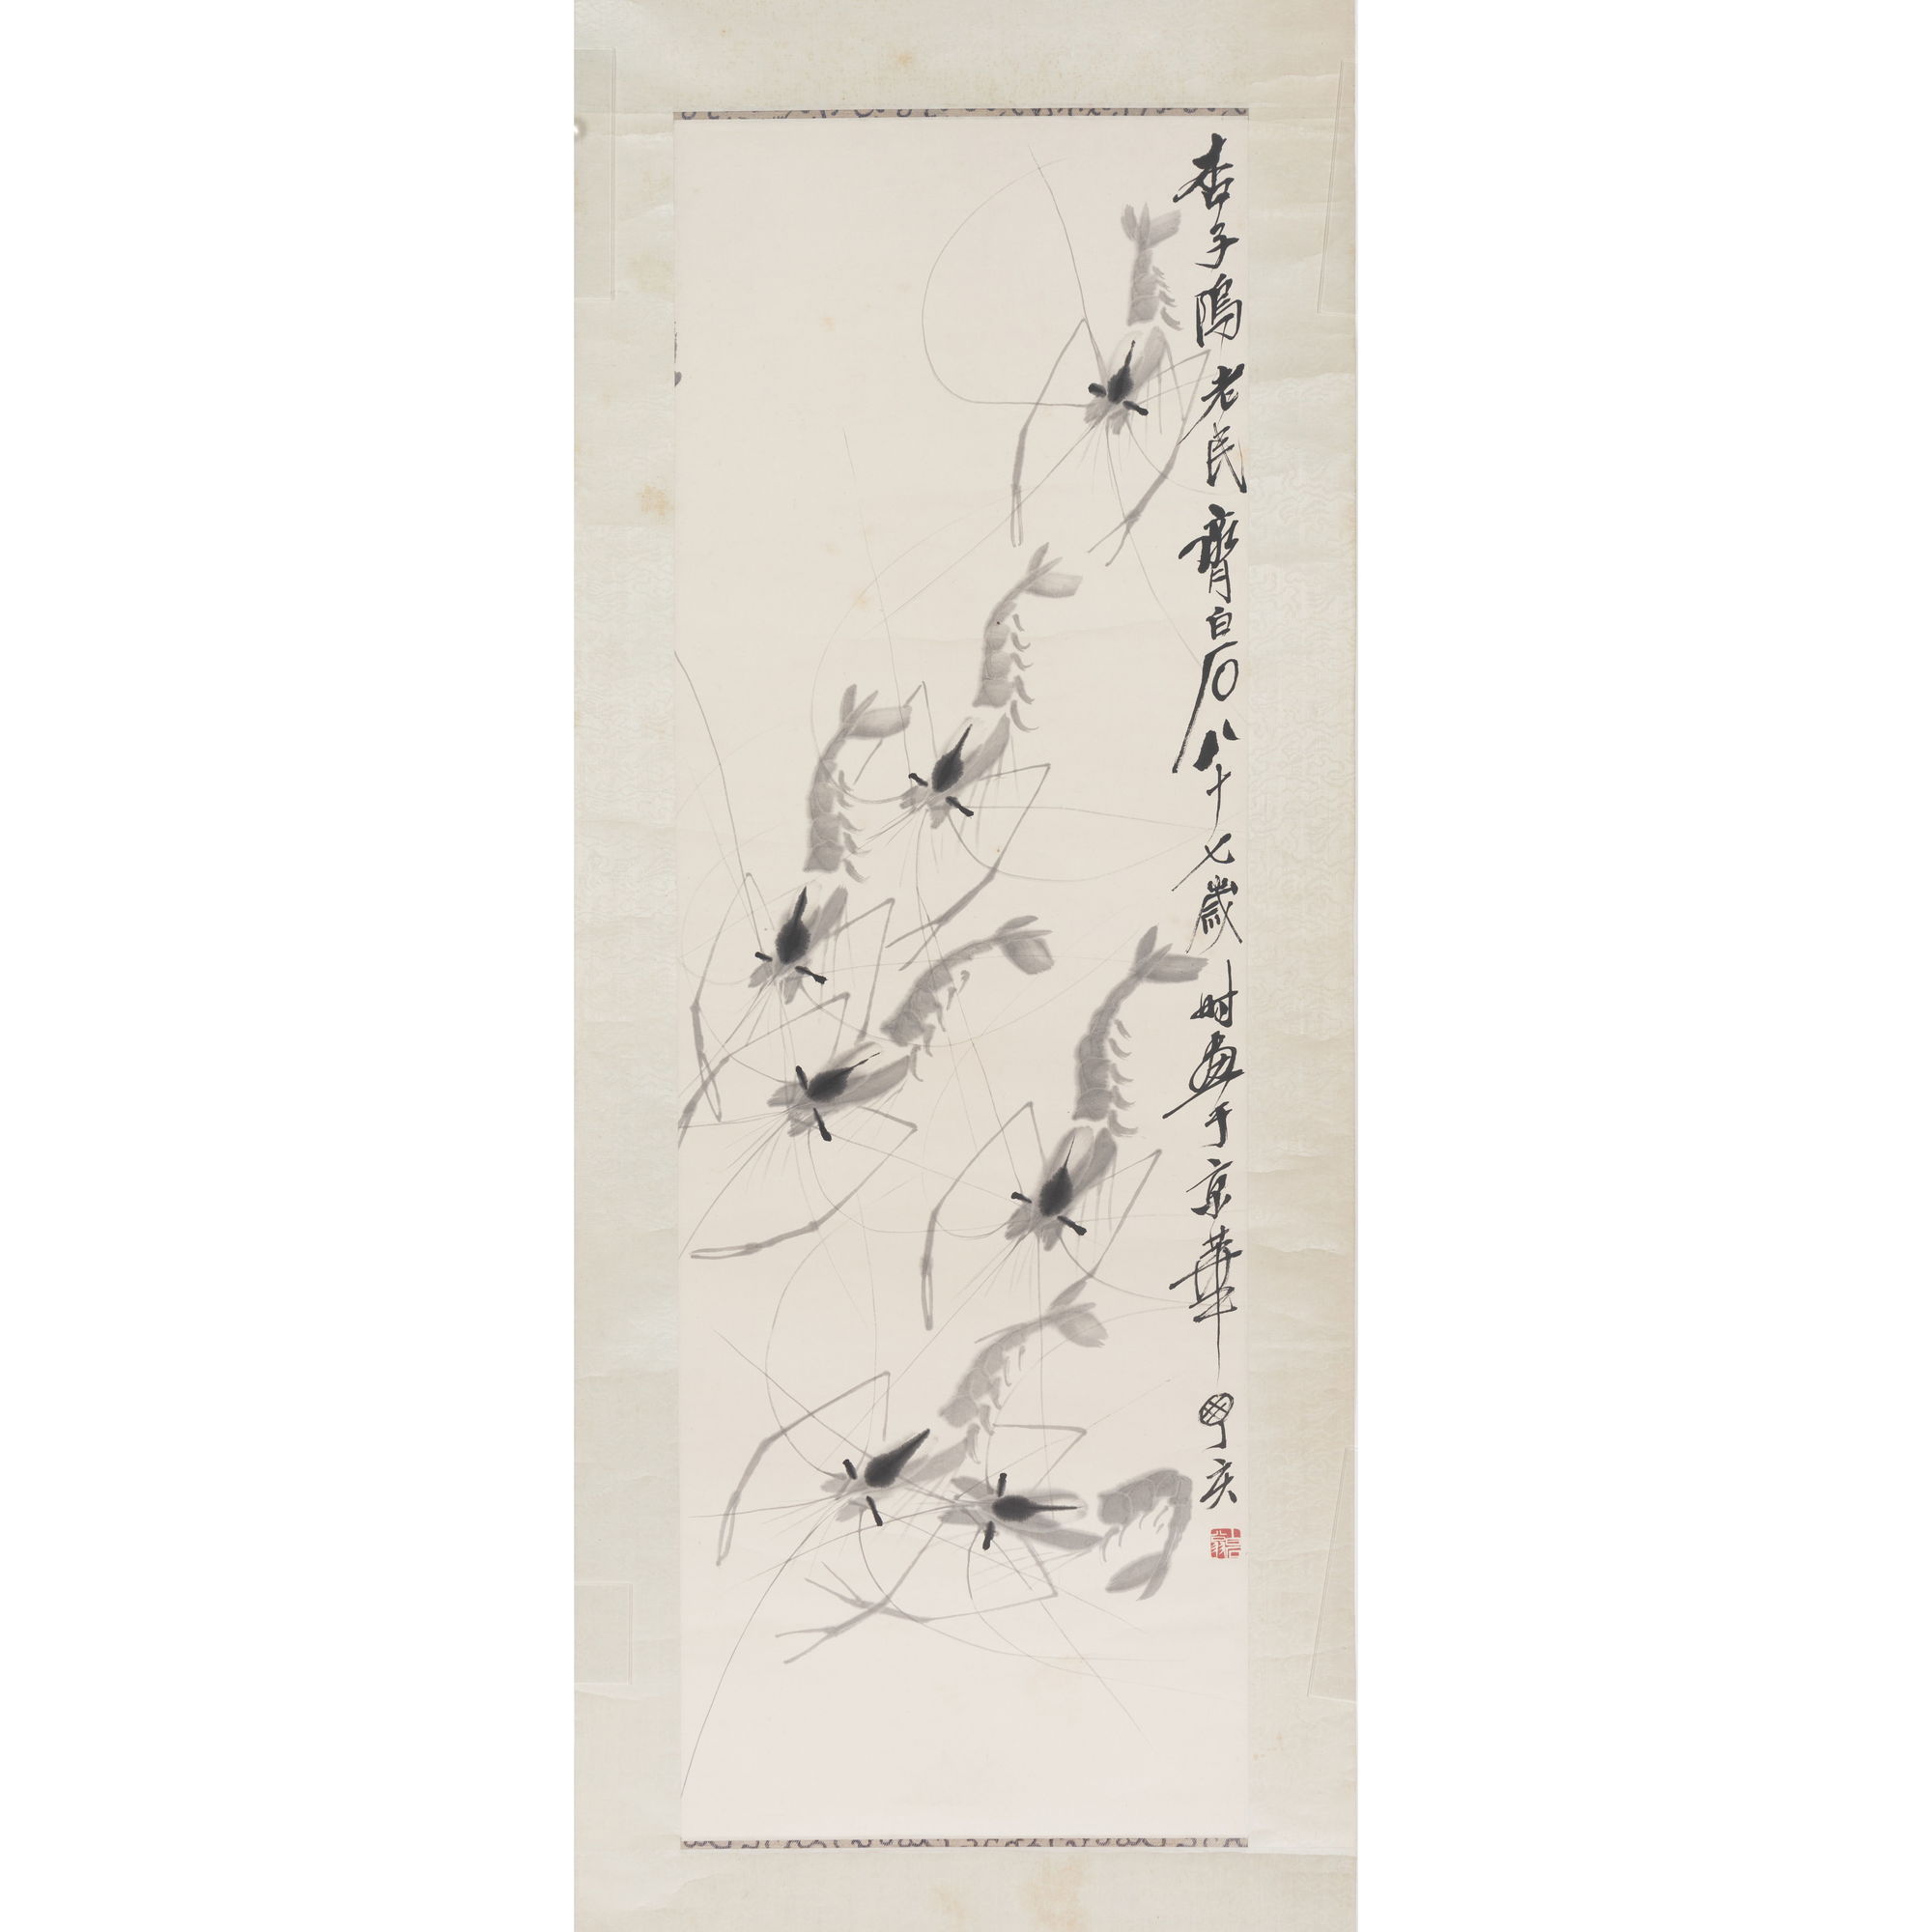 杏子隖老民齊白石八十七歲時畫于京華丁亥